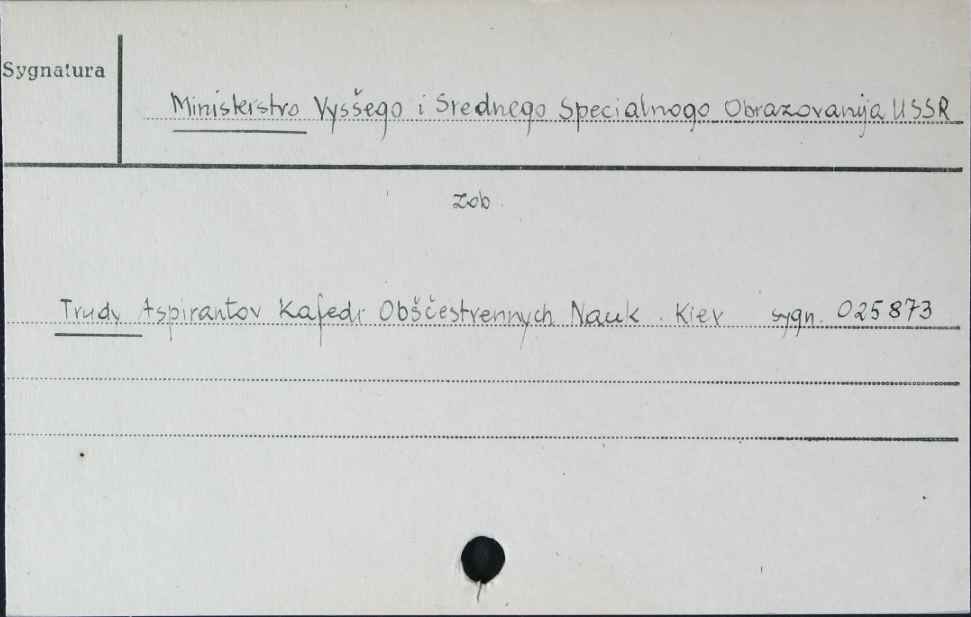 Sygnatura
Ministerstvo Vysšego i Srednego Specialnogo Obrazovanija USSR
zob.
Trudy Aspirantov Kafedr Obščestvennych Nauk. Kiev sygn. 025873